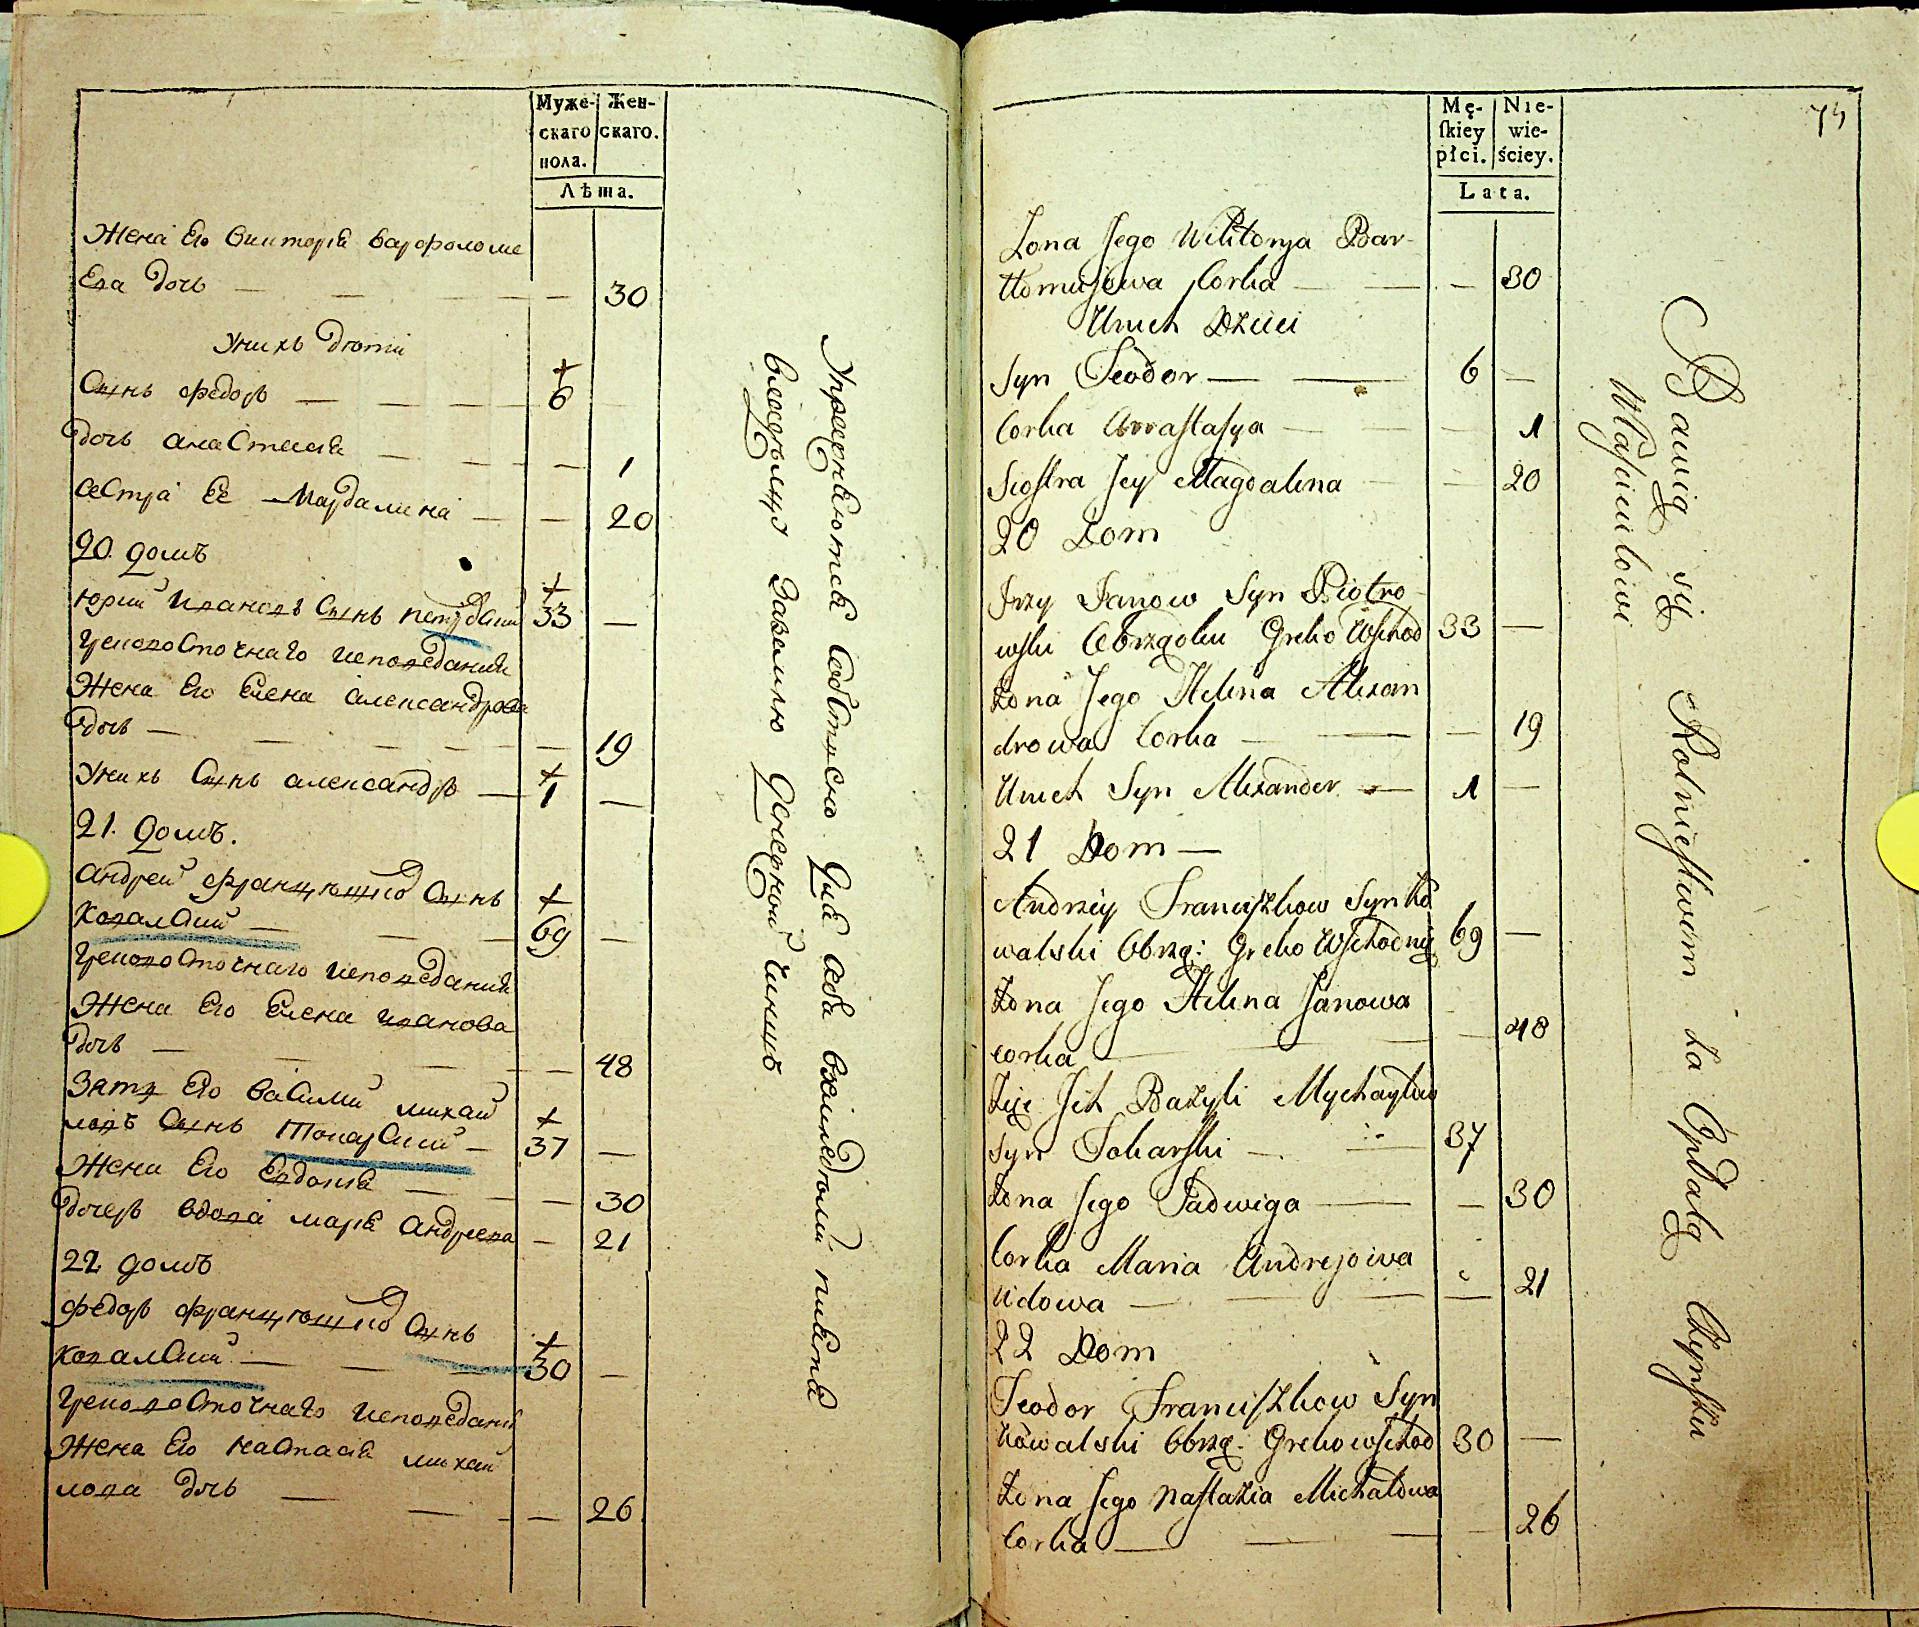 Муже-
скаго
пола.
Жен-
скаго.
Лѣта.
Жена Его Викторія Варфоломе
Ева Дочь — — — — — 30
У нихъ Дѣти
Сынъ Федоръ — — — — 6
Дочь анаСтасія — — — 1
СеСтра Ее Магдалина — — 20
20. домъ
Юрій Ивановъ Сынъ Петровский 33 —
Грековосточнаго исповеданія
Жена Его Елена александрова
Дочь — — — — — — 19
У нихъ Сынъ александръ — 1 —
21. домъ.
андрей францышковъ Сынъ
КовалСкий — — — 69 —
Грековосточнаго исповеданія
Жена Его Елена иванова
Дочь — — — — 48
Зять Его ваСилий михай
ловъ Сынъ ТокарСкий — 37 —
Жена Его Евдокія — — — 30
Дочерь вдова марія андреева — 21
22 домъ
федоръ францышковъ Сынъ
КовалСкий — — — 30 —
Грековосточнаго исповеданія
Жена Его наСтасія михай
лова Дочь — — — — 26
Упражняются
Для себя
владельцу
чиншъ
75
Mę-
ſkiey
płci.
Nie-
wie-
ściey.
Lata.
Zona Jego Wiktorya Bar-
tłomiejowa Corka — — — 30
U nich Dzieci
Syn Teodor — — 6 —
Corka Anastaſya — — — 1
Sioſtra Jey Magdalena — — 20
20 Dom
Jrzy Janow Syn Piotro-
wſki Obrządku Greko Wſchod 33 —
Zona Jego Helena Alexan
drowa Corka — — — 19
U nich Syn Alexander — — 1 —
21 Dom —
Andrzey Franciſzkow Syn Ko
walski Obrzą: Greko Wſchodnię 69 —
Zona Jego Helena Janowa
corka — — — — 48
Zięć Jch Bazyli Mychayłow
Syn Tokarſki — — 37
Zona Jego Jadwiga — — 30
Corka Maria Andrejowa
Wdowa — — — — — 21
22 Dom
Teodor Franciſzkow Syn
Kowalski Obrzą: Greko wſchod 30 —
Zona Jego Naſtazia Michałowa
Corka — — — — 26
Bawią się Rolnictwem za Opłatą Czynſzu
Właſcicielowi